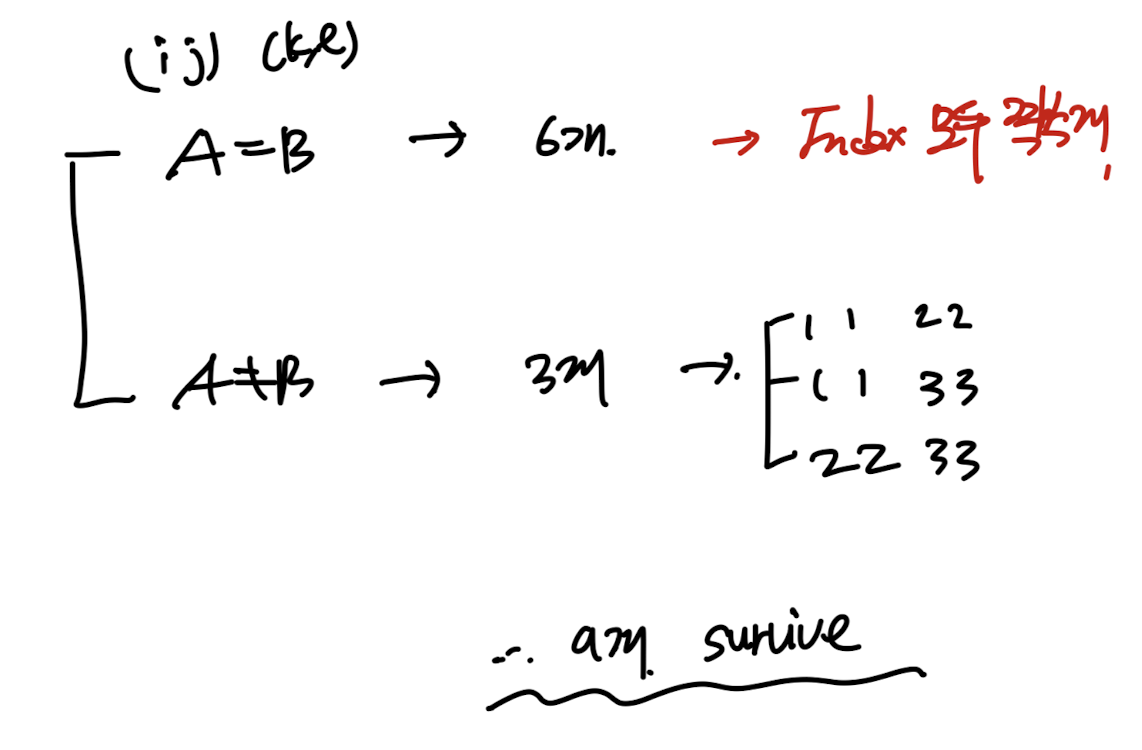 (ij) (k,l)
A=B → 6개. → Index 모두 짝수개!
A≠B → 3개 →. 11 22
11 33
22 33
∴ 9개. survive